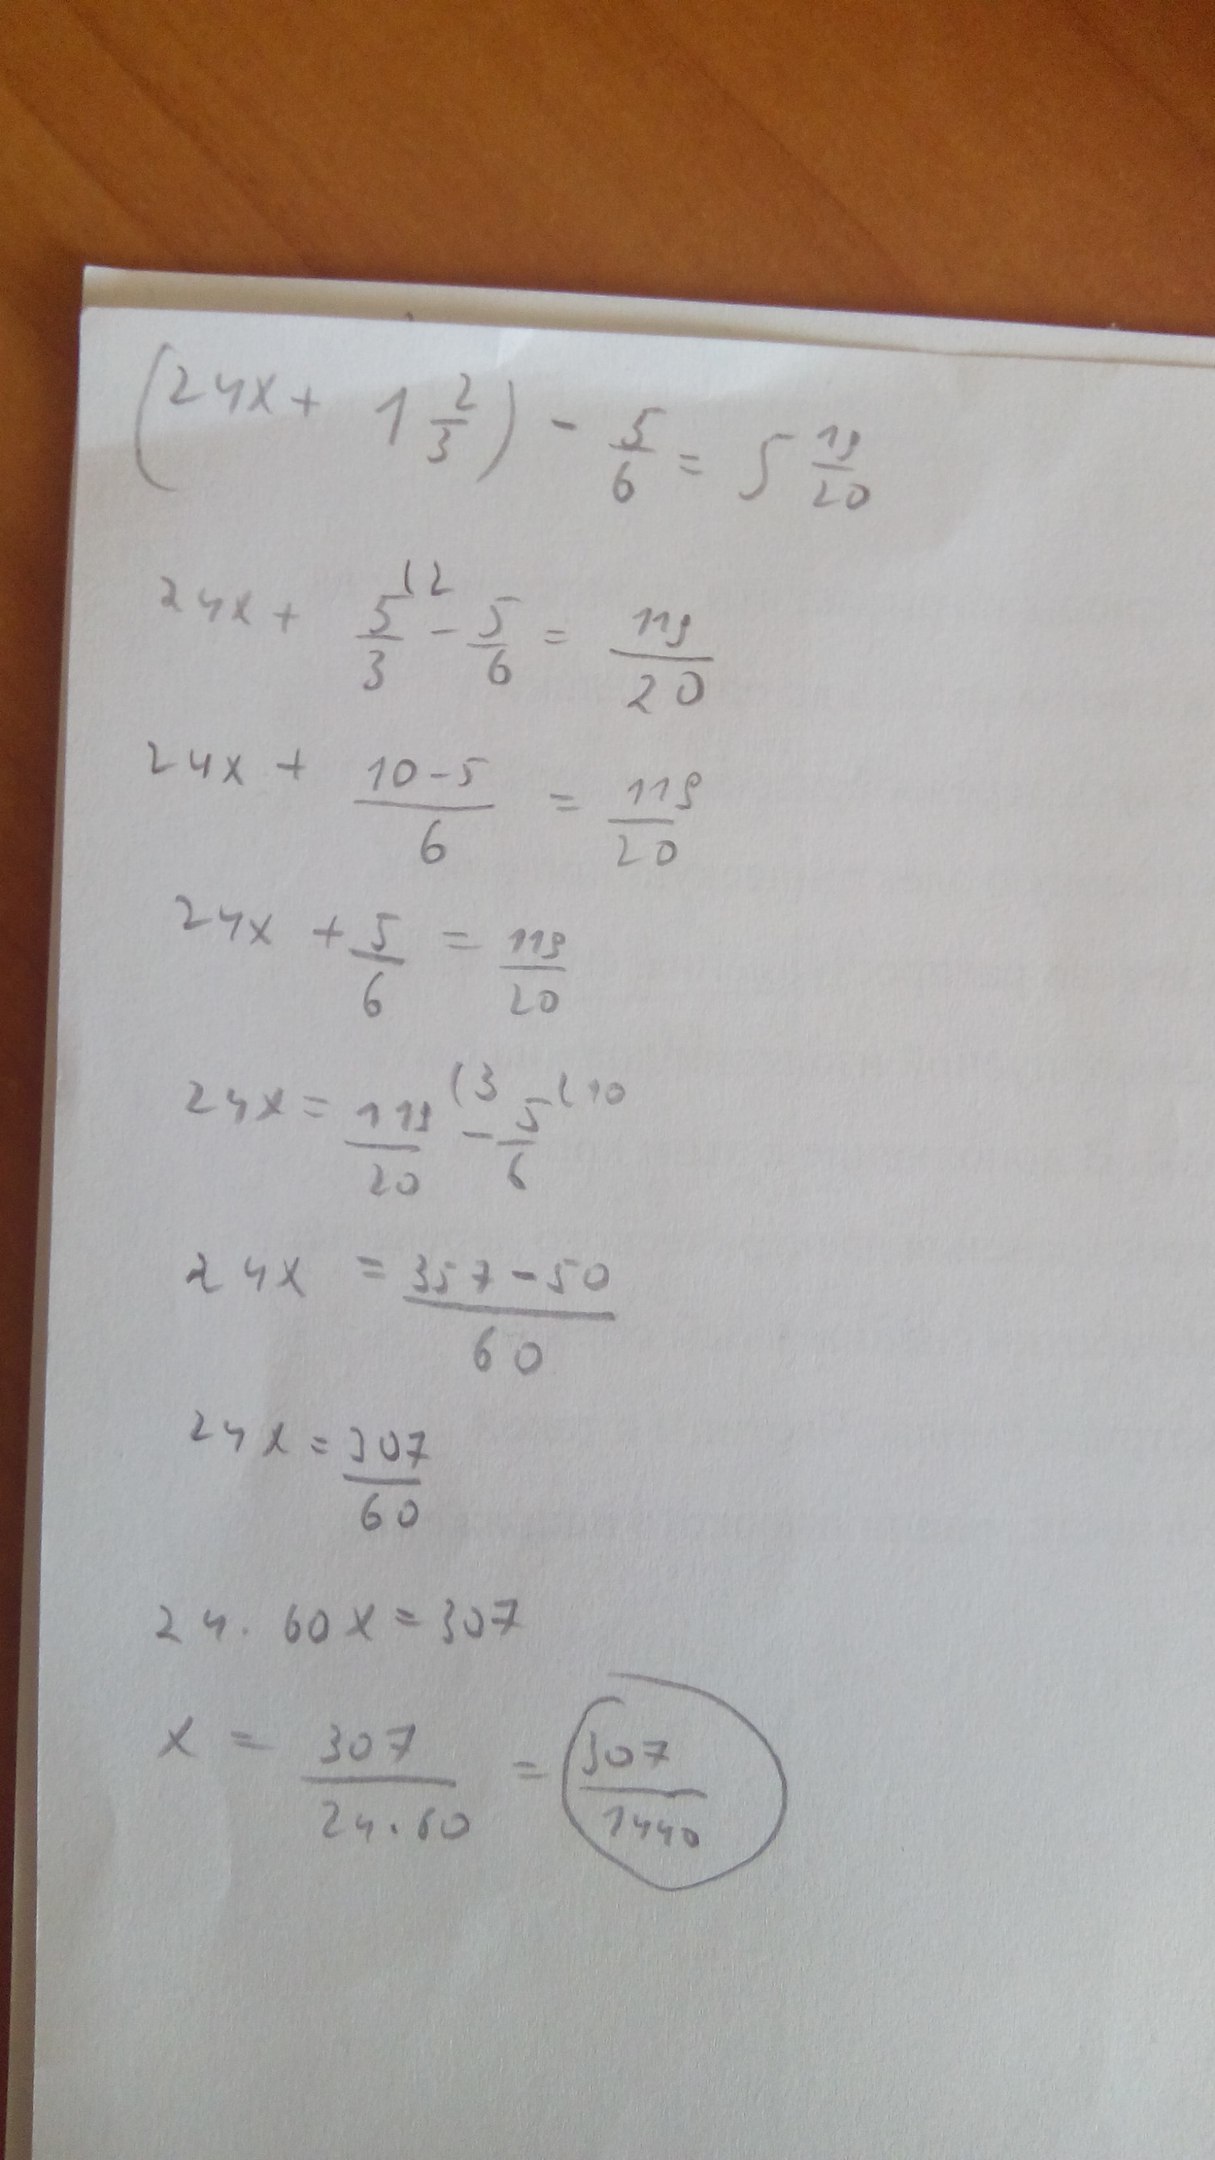 (24x + 1 2/3) - 5/6 = 5 19/20
24x + 5/3 (2 - 5/6 = 119/20
24x + 10-5/6 = 119/20
24x + 5/6 = 119/20
24x = 119/20 (3 - 5/6 (10
24x = 357-50/60
24x = 307/60
24 . 60x = 307
x = 307/24.60 = 307/1440